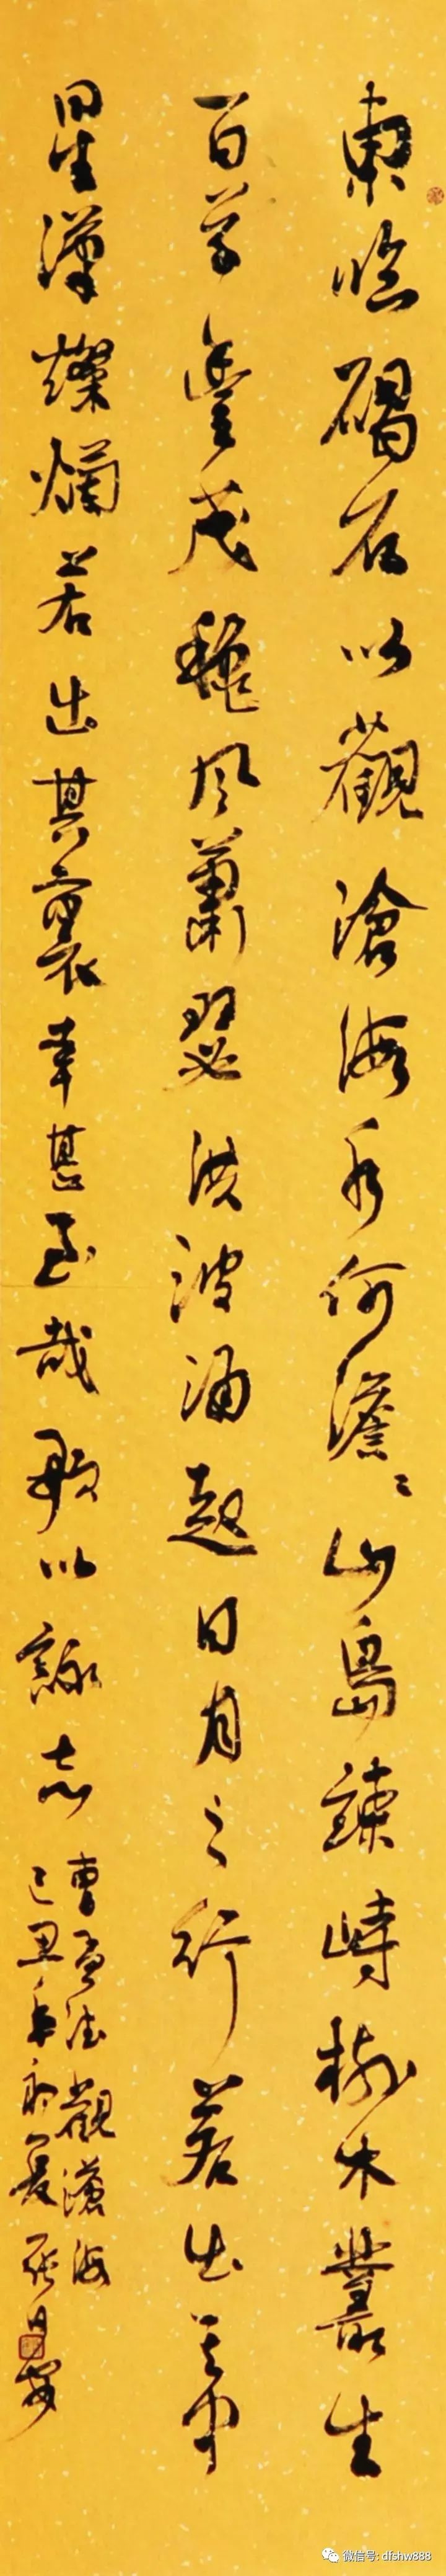 東臨碣石以觀滄海水何澹〻山島竦峙樹木叢生
百草豐茂穐風蕭瑟洪波涌起日月之行若出其中
星漢燦爛若出其裏幸甚至哉歌以詠志
曹孟德觀滄海
己丑年初夏
微信号: dfshw888